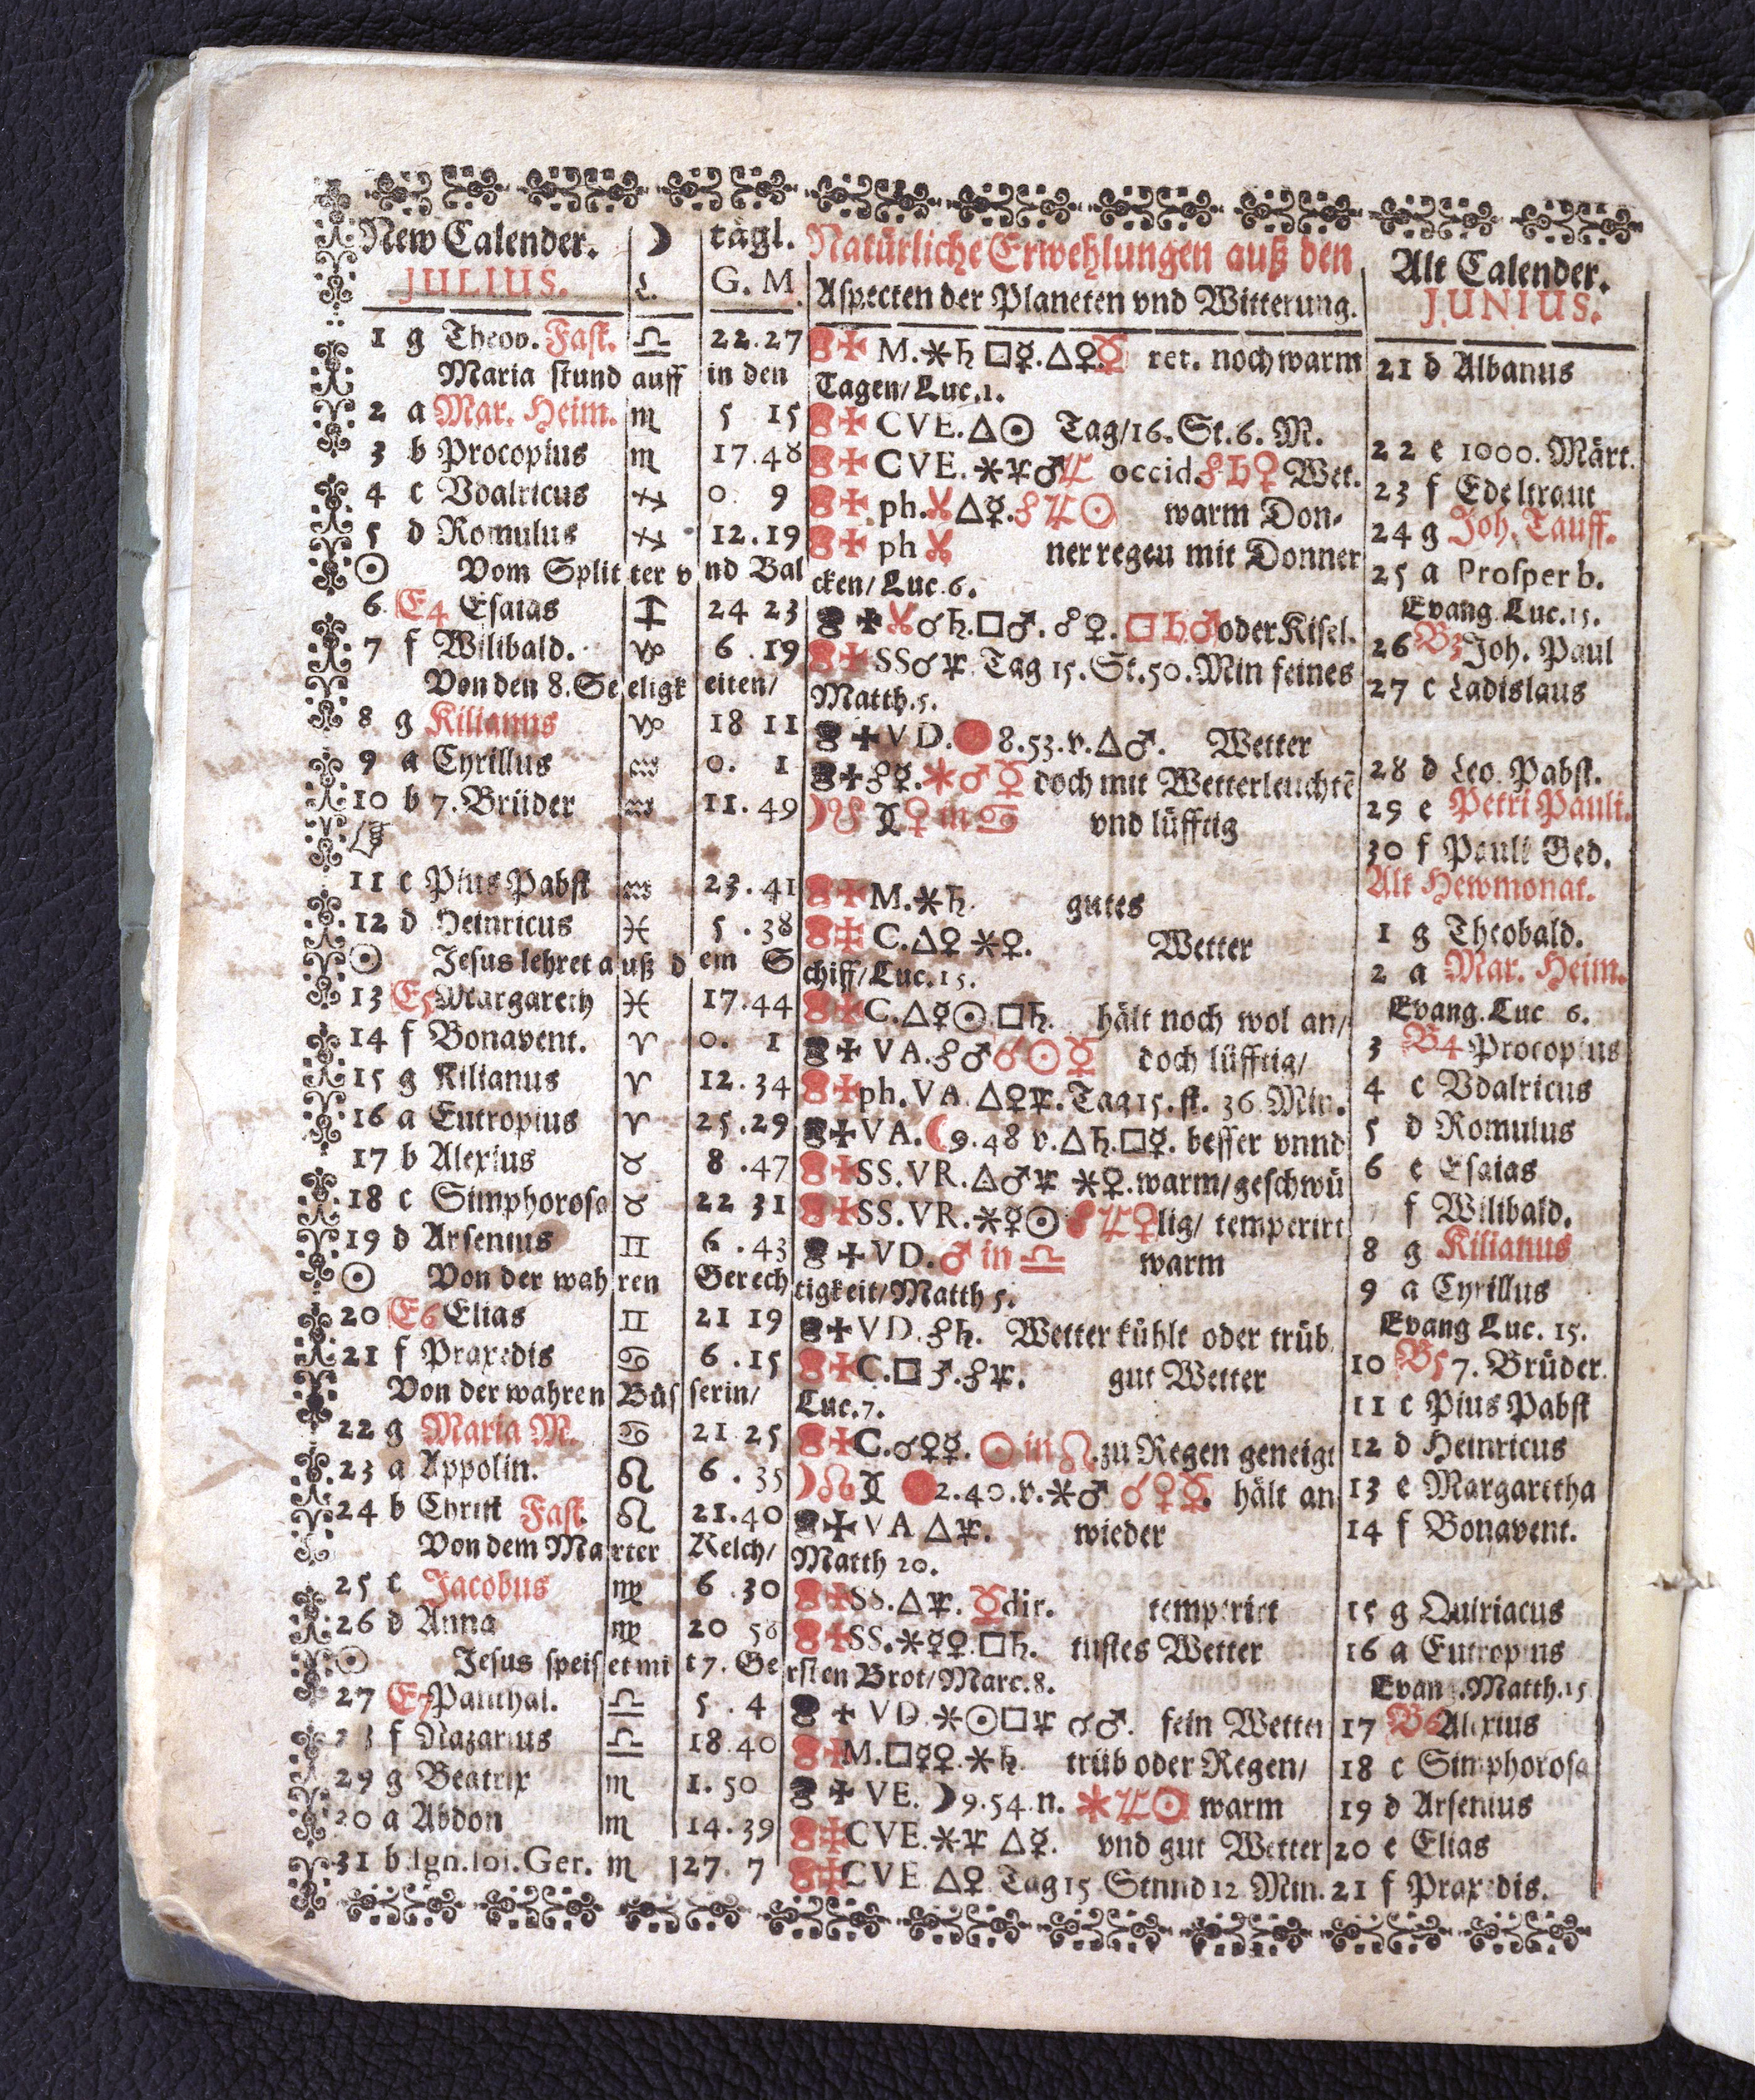 New Calender. ☽ tägl. Natürliche Erwehlungen auß den Alt Calender.
JULIUS. L. G. M. Aspecten der Planeten vnd Witterung. JUNIUS.
1 g Theob. Fast. ♎ 22.27 M.⚹♄ □☿.△♀.☿ ret. noch warm 21 d Albanus
Maria stund auff in den Tagen/Luc.1.
2 a Mar. Heim. ♏ 5 15 CVE.△☉ Tag/16.St.6.M. 22 e 1000. Märt.
3 b Procopius ♏ 17.48 CVE. ⚹♃♂ occid.☍♄♀ Wet. 23 f Edeltraut
4 c Vdalricus ♐ 0. 9 ph.△☿.☍♃☉ warm Don- 24 g Joh. Tauff.
5 d Romulus ♐ 12.19 ph ner regen mit Donner 25 a Prosper b.
☉ Vom Splitter vnd Balcken/Luc.6. Evang.Luc.15.
6 E4 Esaias ♐ 24 23 ☌♄.□♂.☍♀.□♄♂ oder Kisel. 26 B3 Joh. Paul
7 f Wilibald. ♑ 6.19 SS☌♃ Tag 15.St.50.Min feines 27 c Ladislaus
Von den 8. Seeligkeiten/ Matth.5.
8 g Kilianus ♑ 18 11 VD. 8.53.v.△♂. Wetter 28 d Leo. Pabst.
9 a Cyrillus ♒ 0. 1 ☍☿.⚹♂☿ doch mit Wetterleuchtē 29 e Petri Pauli.
10 b 7. Brüder ♒ 11.49 ♀ in ♋ vnd lüfftig 30 f Pauli Ged.
Alt Hewmonat.
11 c Pius Pabst ♒ 23.41 M.⚹♄. gutes 1 g Theobald.
12 d Heinricus ♓ 5.38 C.△♀ ⚹♀. Wetter 2 a Mar. Heim.
☉ Jesus lehret auß dem Schiff/Luc.15. Evang.Luc 6.
13 E5 Margareth ♓ 17.44 C.△☿☉.□♄. hält noch wol an/ 3 B4 Procopius
14 f Bonavent. ♈ 0. 1 VA.☍♂☌☉☿ doch lüfftig/ 4 c Vdalricus
15 g Kilianus ♈ 12.34 ph.VA △♀♃.Tag 15.st.36 Min. 5 d Romulus
16 a Eutropius ♈ 25.29 VA.☾9.48 v.△♄.□☿. besser vnnd 6 e Esaias
17 b Alexius ♉ 8.47 SS.VR.△♂♃ ⚹♀.warm/geschwü f Wilibald.
18 c Simphorosa ♉ 22 31 SS.VR.⚹☿☉☍♃♀lig/ temperirt 8 g Kilianus
19 d Arsenius ♊ 6.43 VD.♂ in ♎ warm 9 a Cyrillus
☉ Von der wahren Gerechtigkeit/Matth 5. Evang Luc. 15.
20 E6 Elias ♊ 21 19 VD.☍♄. Wetter kühlt oder trüb. 10 B5 7. Brüder.
21 f Praxedis ♋ 6.15 C.□♂.☍♃. gut Wetter 11 c Pius Pabst
Von der wahren Büsserin/ Luc.7.
22 g Maria M. ♋ 21 25 C.☌♀☿. ☉ in ♌.zu Regen geneigt 12 d Heinricus
23 a Appolin. ♌ 6.35 2.40.v.⚹♂ ☌♀☿. hält an 13 e Margaretha
24 b Christ Fast. ♌ 21.40 VA △♃. wieder 14 f Bonavent.
Von dem Marter Kelch/ Matth 20.
25 c Jacobus ♍ 6.30 SS.△♃.☿dir. temperirt 15 g Quiriacus
26 d Anna ♍ 20 SS.⚹☿♀.□♄. Wetter 16 a Eutropius
☉ Jesus speiset mit 7. Gersten Brot/Marc.8. Evang.Matth.15
27 E7 Panthal. ♎ 5.4 VD.⚹☉□♃ ☌♂. fein Wetter 17 B6 Alexius
f Nazarius ♎ 18.40 M.□☿♀.⚹♄. trüb oder Regen/ 18 c Simphorosa
29 g Beatrix ♏ 1.50 VE. ☽9.54.n. ⚹♃☉ warm 19 d Arsenius
20 a Abdon ♏ 14.39 CVE.⚹♃ △☿. vnd gut Wetter 20 e Elias
31 b Ign.loi.Ger. ♏ 27.7 CVE △♀ Tag 15 Stnnd 12 Min. 21 f Praxedis.